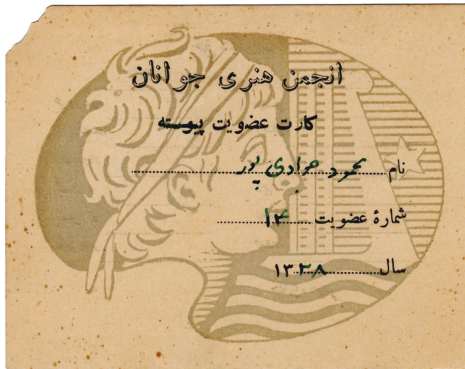 انجمن هنری جوانان
کارت عضویت پیوسته
نام محمود مرادی پور
شمارهٔ عضویت ۱۴
سال ۱۳۳۸